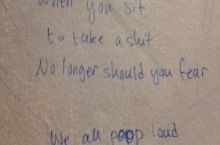 When you sit
to take a shit
No longer should you fear
We all poop loud